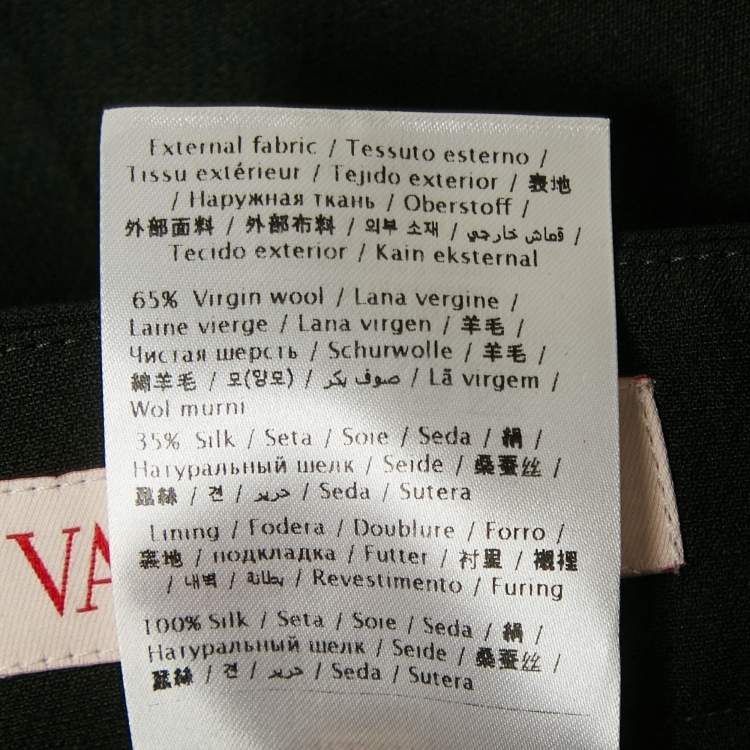 External fabric / Tessuto esterno /
Tissu extérieur / Tejido exterior / 表地
/ Наружная ткань / Oberstoff /
外部面料 / 外部布料 / 외부 소재 / قماش خارجي /
Tecido exterior / Kain eksternal
65% Virgin wool / Lana vergine /
Laine vierge / Lana virgen / 羊毛 /
Чистая шерсть / Schurwolle / 羊毛 /
綿羊毛 / 모(양모) / صوف بكر / Lã virgem /
Wol murni
35% Silk / Seta / Soie / Seda / 絹 /
Натуральный шелк / Seide / 桑蚕丝 /
蠶絲 / 견 / حرير / Seda / Sutera
Lining / Fodera / Doublure / Forro /
裏地 / подкладка / Futter / 衬里 / 襯裡
/ 내벽 / بطانة / Revestimento / Furing
100% Silk / Seta / Soie / Seda / 絹 /
Натуральный шелк / Seide / 桑蚕丝 /
蠶絲 / 견 / حرير / Seda / Sutera
VA